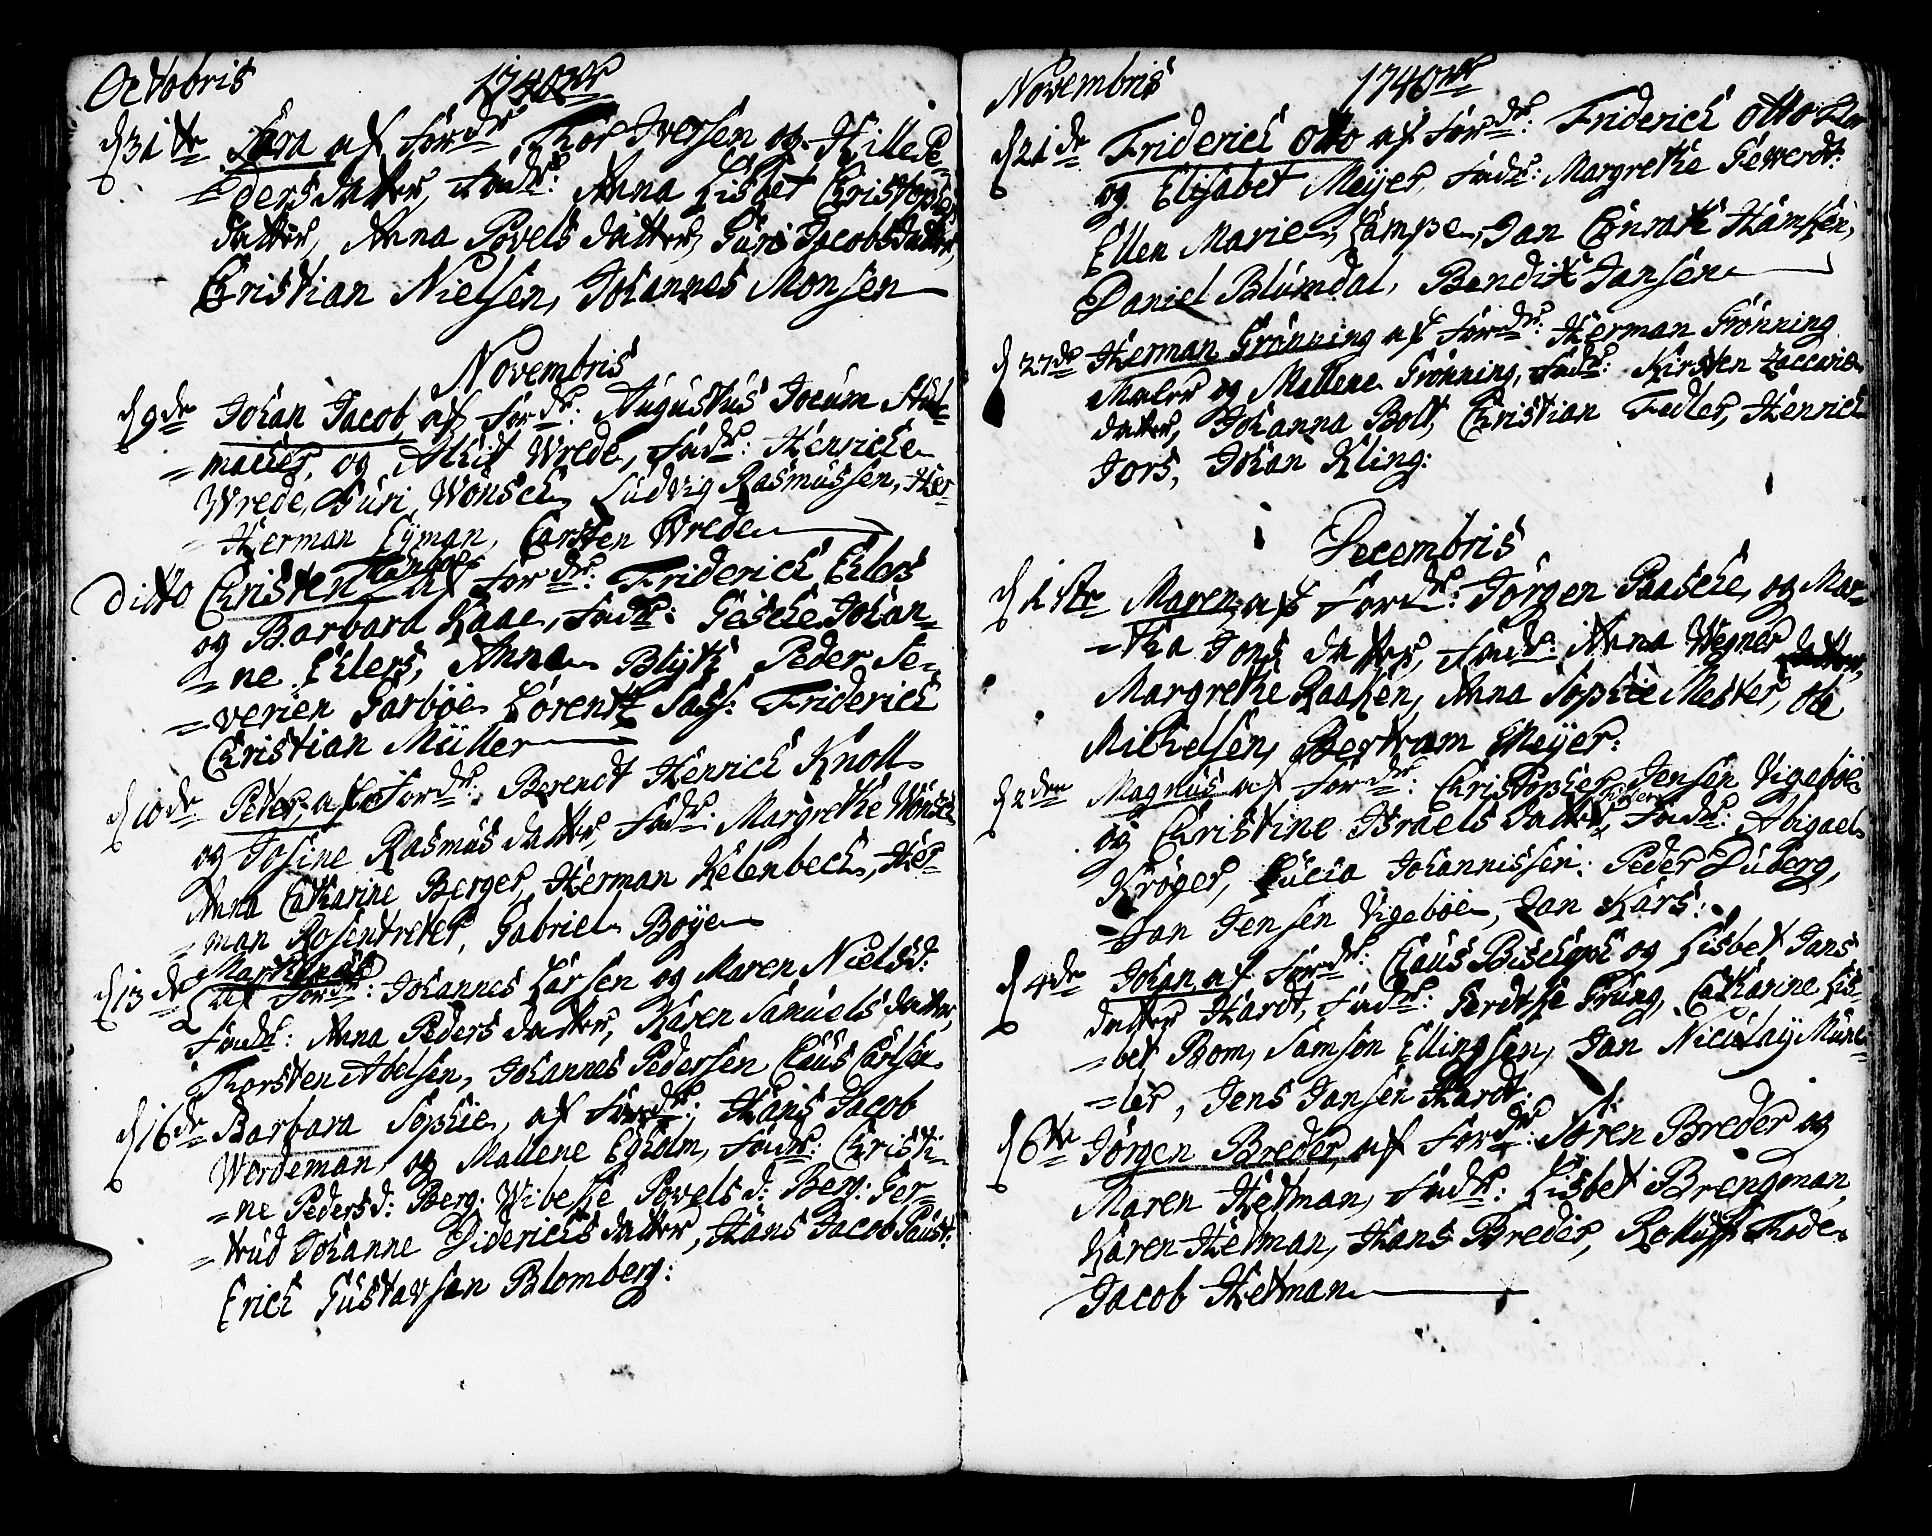 Octobris 1740
d 31te Sara af Fordr: Thor Iversen og Hille Pe-
-ders datter, Fadr: Anna Lisbet Christophers
datter, Anna Povels datter, Guri Jacobs datter,
Christian Nielsen, Johannes Monsen
Novembris
d 9de Johan Jacob, af Fordr: Augustus Jocum Stul-
-macher, og Wrede, Fadr: Henriche
Wrede, Guri Wonsch, Ludvig Rasmussen, Her-
-Herman Eÿman, Carsten Wrede
Ditto Christen Garbøe af Fordr: Friderich Ehlers
og Barbara Kaae, Fadr: Gesche Johan-
-ne Ehlers, Anna Blÿth Peder Se-
-verien Garbøe Lorentz Sass: Friderich
Christian Müller
d 10de Peter, af Fordr: Berendt Henrich Knoll
og Josine Rasmus datter, Fadr: Margrethe Wonsch
Anna Catharine Berger, Herman Kelenbech, Her-
-man Rosentreter, Gabriel Boÿe
d 13de Marthinus
af Fordr: Johannes Larsen og Maren Niels d:
Fadr: Anna Peders datter, Karen Samuels datter,
Thorsten Abelsen, Johannes Pedersen Claus Carlsen
d 16de Barbara Sophie, af Fordr: Hans Jacob
Werdeman, og Mallene Egholm, Fadr: Christi-
-ne Peders d: Berg: Wibeke Povels d: Berg: Ger-
-trud Johanne Diderichs datter, Hans Jacob Paust:
Erich Gustavsen Blomberg:
Novembris 1740
d 21de Friderich Otto af Fordr: Friderich Otto
og Elisabet Meÿer, Fadr: Margrethe Gewerdt:
Ellen Marie Lampe, Jan Conrath Hamken,
Daniel Blumdal, Bendix Jansen
d 27de Herman Grønning af Fordr: Herman Grønning
Maler og Mallene Grønning, Fadr: Kirsten Zaccarie
datter, Johanna Bolt, Christian Fedler, Henrich
Jors, Johan Kling:
Decembris
d 1ste Maren, af Fordr: Jørgen Paasche, og Mar-
-tha Jons datter, Fadr: Anna Wegner
Margrethe Raaken, Anna Sophie Mester, Ole
Michelsen, Bertram Meÿer:
d 2den Magnus af Fordr: Christopher Jensen Vigebøe
og Christine Israels datter, Fadr: Abigael
Krøger, Lucia Johannissen: Peder Duberg,
Jan Jensen Vigebøe, Jan Kars:
d 4de Johan af Fordr: Claus Bischoph og Lisbet Jans
datter Hardt, Fadr: Gerdtke Grung, Catharine Lis-
-bet Bom, Samson Ellingsen, Jan Nicolaÿ Münc-
-ler, Jens Jansen Hardt:
d 6te Jørgen Breder, af Fordr: Søren Breder og
Maren Hetman, Fadr: Lisbet Brengman,
Karen Hetman, Hans Breder, Roluff Thode
Jacob Hetman